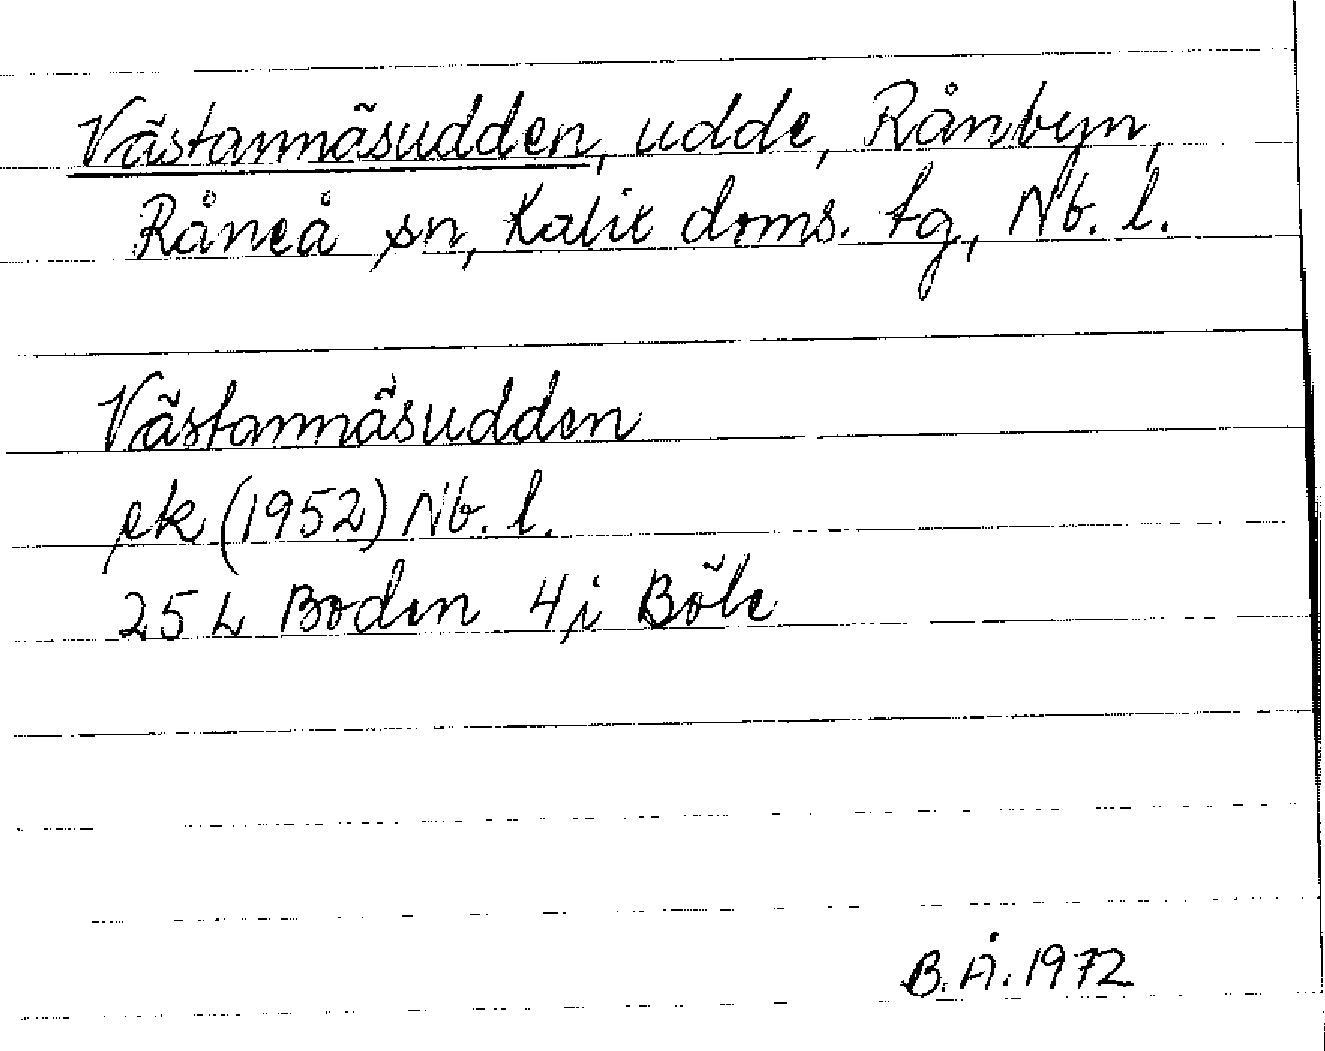 Västannäsudden, udde, Rånbyn,
Råneå sn, Kalix doms. tg, Nb. l.
Västannäsudden
ek (1952) Nb. l.
25 L Boden 4 i Böle
B.Å. 1972